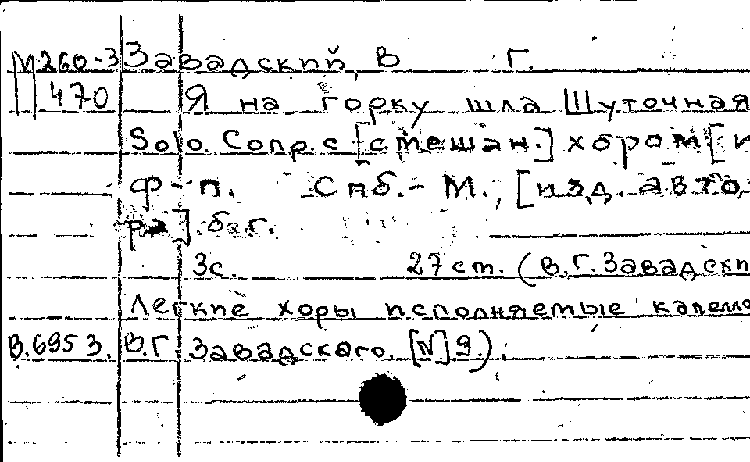 М260-3 Завадский, В Г.
470 Я на горку шла Шуточная
Solo. Сопр. с [смешан.] хором [и
ф-п. Спб.- М., [изд. авто-
ра]. б.г.
3с. 27 ст. (В.Г. Завадски
Легкие хоры исполняемые капелло
В.695 3. В.Г. Завадского. [N] 9).